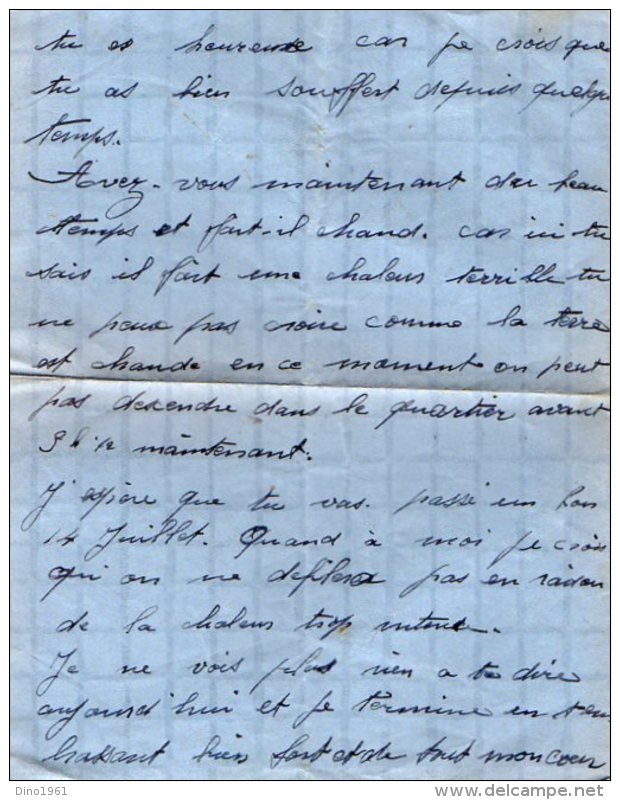 tu es heureuse car je crois que
tu as bien souffert depuis quelque
temps.
Avez-vous maintenant du beau
temps et fait-il chaud. car ici tu
sais il fait une chaleur terrible tu
ne peux pas croire comme la terre
est chaude en ce moment on peut
pas descendre dans le quartier avant
9h 1/2 maintenant.
J'espère que tu vas. passé un bon
14 Juillet. Quand à moi je crois
qui on ne défilera pas en raison
de la chaleur trop intense.
Je ne vois plus rien a te dire
aujourd'hui et je termine en t'em
brassant bien fort et de tout mon coeur
Dino1961
delcampe.net